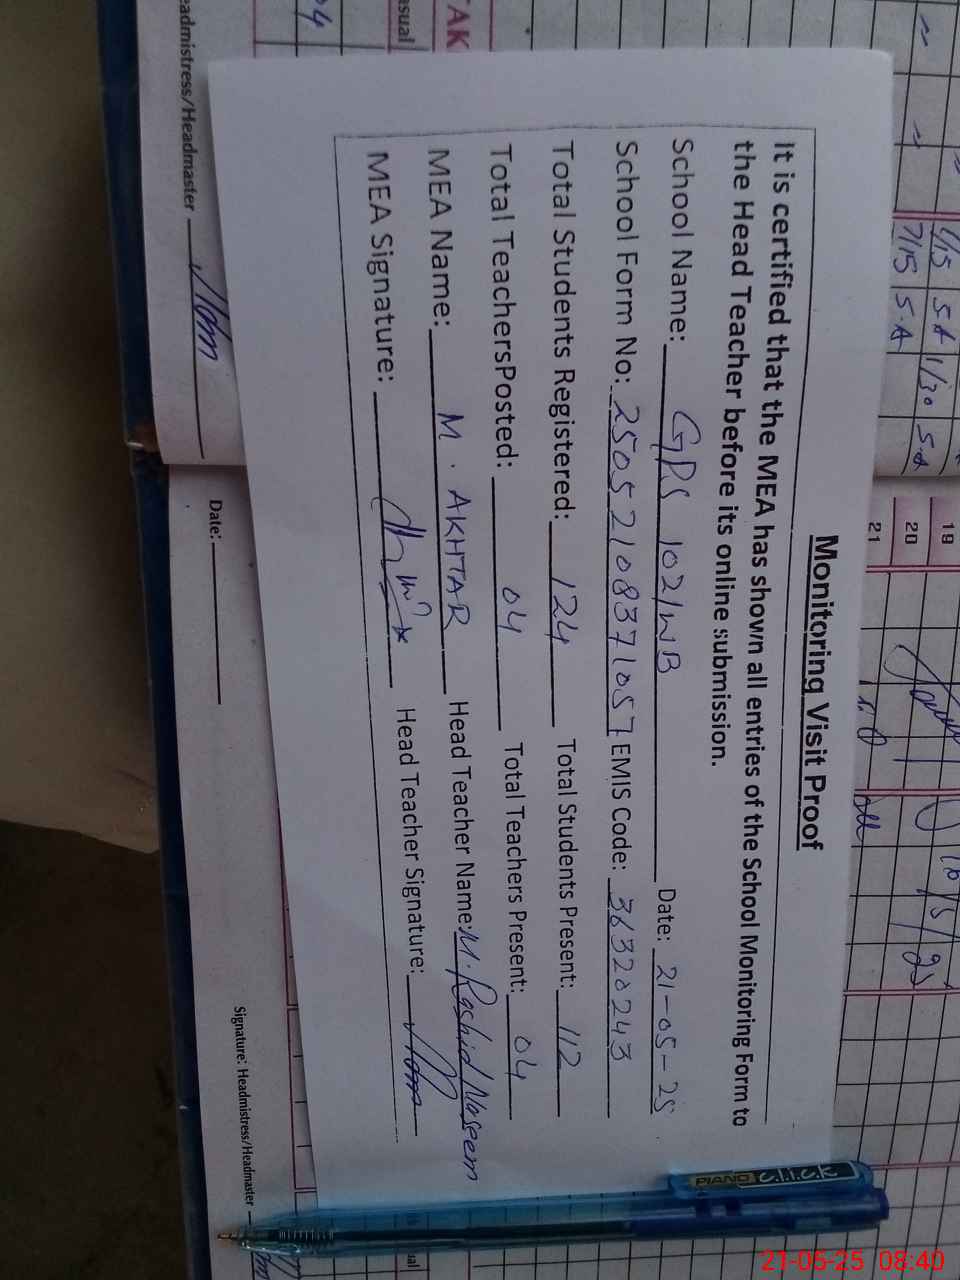 Monitoring Visit Proof
It is certified that the MEA has shown all entries of the School Monitoring Form to
the Head Teacher before its online submission.
School Name: GPS 102/WB Date: 21-05-25
School Form No: 25052108371057 EMIS Code: 36320243
Total Students Registered: 124 Total Students Present: 112
Total TeachersPosted: 04 Total Teachers Present: 04
MEA Name: M. AKHTAR Head Teacher Name: M. Rashid Naseem
MEA Signature: Head Teacher Signature:
eadmistress/Headmaster
Date:
Signature: Headmistress/Headmaster
04
asual
TAK
1/15 S.A 1/30 S.A
7/15 S.A
19
20
21
PIANO click
21-05-25 08:40